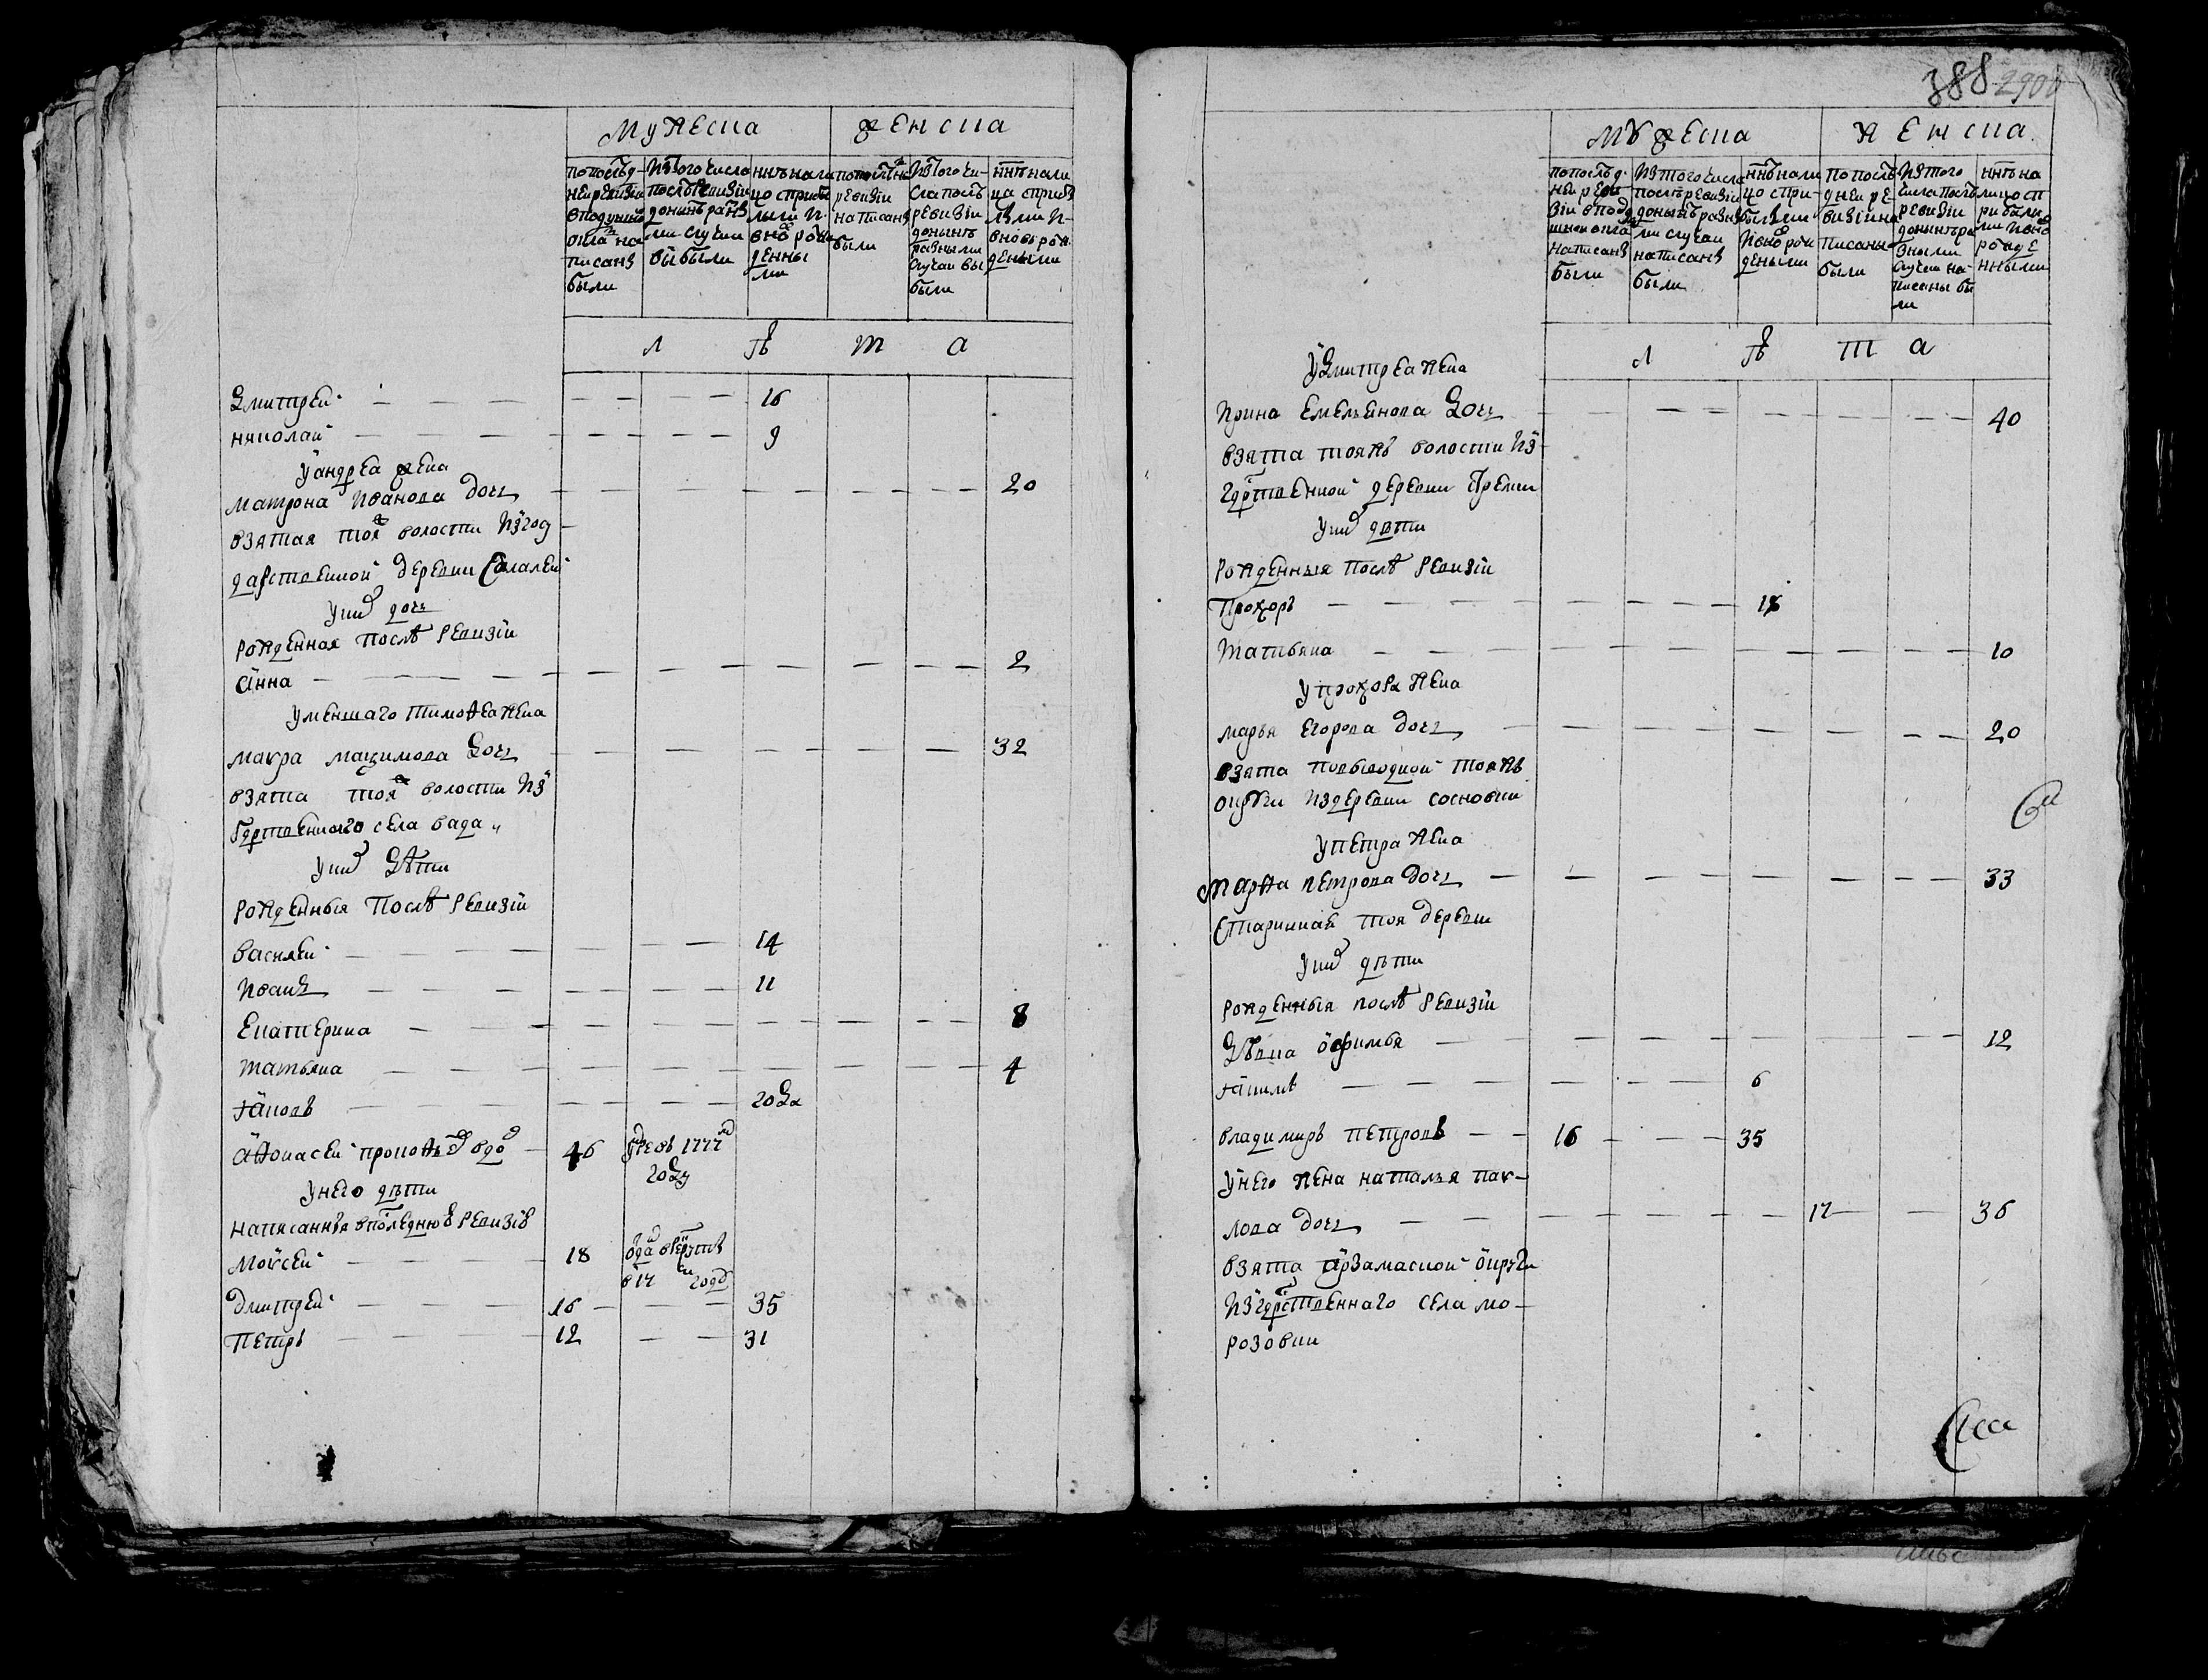 мужеска женска
попослѣд- ней ревизіи вподушной окладъ на писаны были
изтого числа послѣ ревизіи донынѣ разны ми случаи вы были
ннѣ нали цо с прибы лыми и вновь рож денны ми
попослѣдн ревизіи написаны были
изтого чи- сла послѣ ревизіи донынѣ разными случаи вы были
ннѣ нали цо с прибы лыми и вновь рож деными
л ѣ т а
Дмитрей 16
николай 9
у андрея жена
матрона иванова дочь 20
взятая тояж волости из госу
дарственной деревни
у них дочь
рожденная послѣ ревизіи
анна 2
у меншаго тимофея жена
макра мазимова дочь 32
взята тояж волости из
гдрственнаго села вада
у них дѣти
рожденныя послѣ ревизіи
василей 14
иванъ 11
екатерина 8
татьяна 4
яковъ году
афонасей прокофьевъ вдов 46 умре въ 1777м году
у него дѣти
написанныя в последнюю ревизію
моисей 18 отда в рекруты в 17 году
дмитрей 16 35
петръ 12 31
388 290
мужеска женска
попослѣд ней реви зіи в поду шной окла написаны были
изтого числа послѣ ревизіи донынѣ разны ми случаи написаны были
ннѣ нали цо с при- былыми и вновь рож деными
по послѣ дней ре- визіи на писаны были
изтого числа послѣ ревизіи донынѣ ра зными случаи на- писаны бы ли
ннѣ на лицо с п рибылы ми и вновь рожде нными
л ѣ т а
у дмитрея жена
ирина емельянова дочь 40
взята тояжъ волости из
гдрственной деревни
у них дѣти
рожденныя послѣ ревизіи
прохоръ 18
татьяна 10
у прохора жена
марья егорова дочь 20
взята по выводной тояжъ
округи из деревни сосновки
у петра жена
марфа петрова дочь 33
старинная тоя деревни
у них дѣти
рожденныя послѣ ревизіи
дѣвка офимья 12
якимъ 6
владимиръ петровъ 16 35
у него жена наталья пав-
лова дочь 17 36
взята арзамаской округи
из гдрственнаго села мо-
розовки